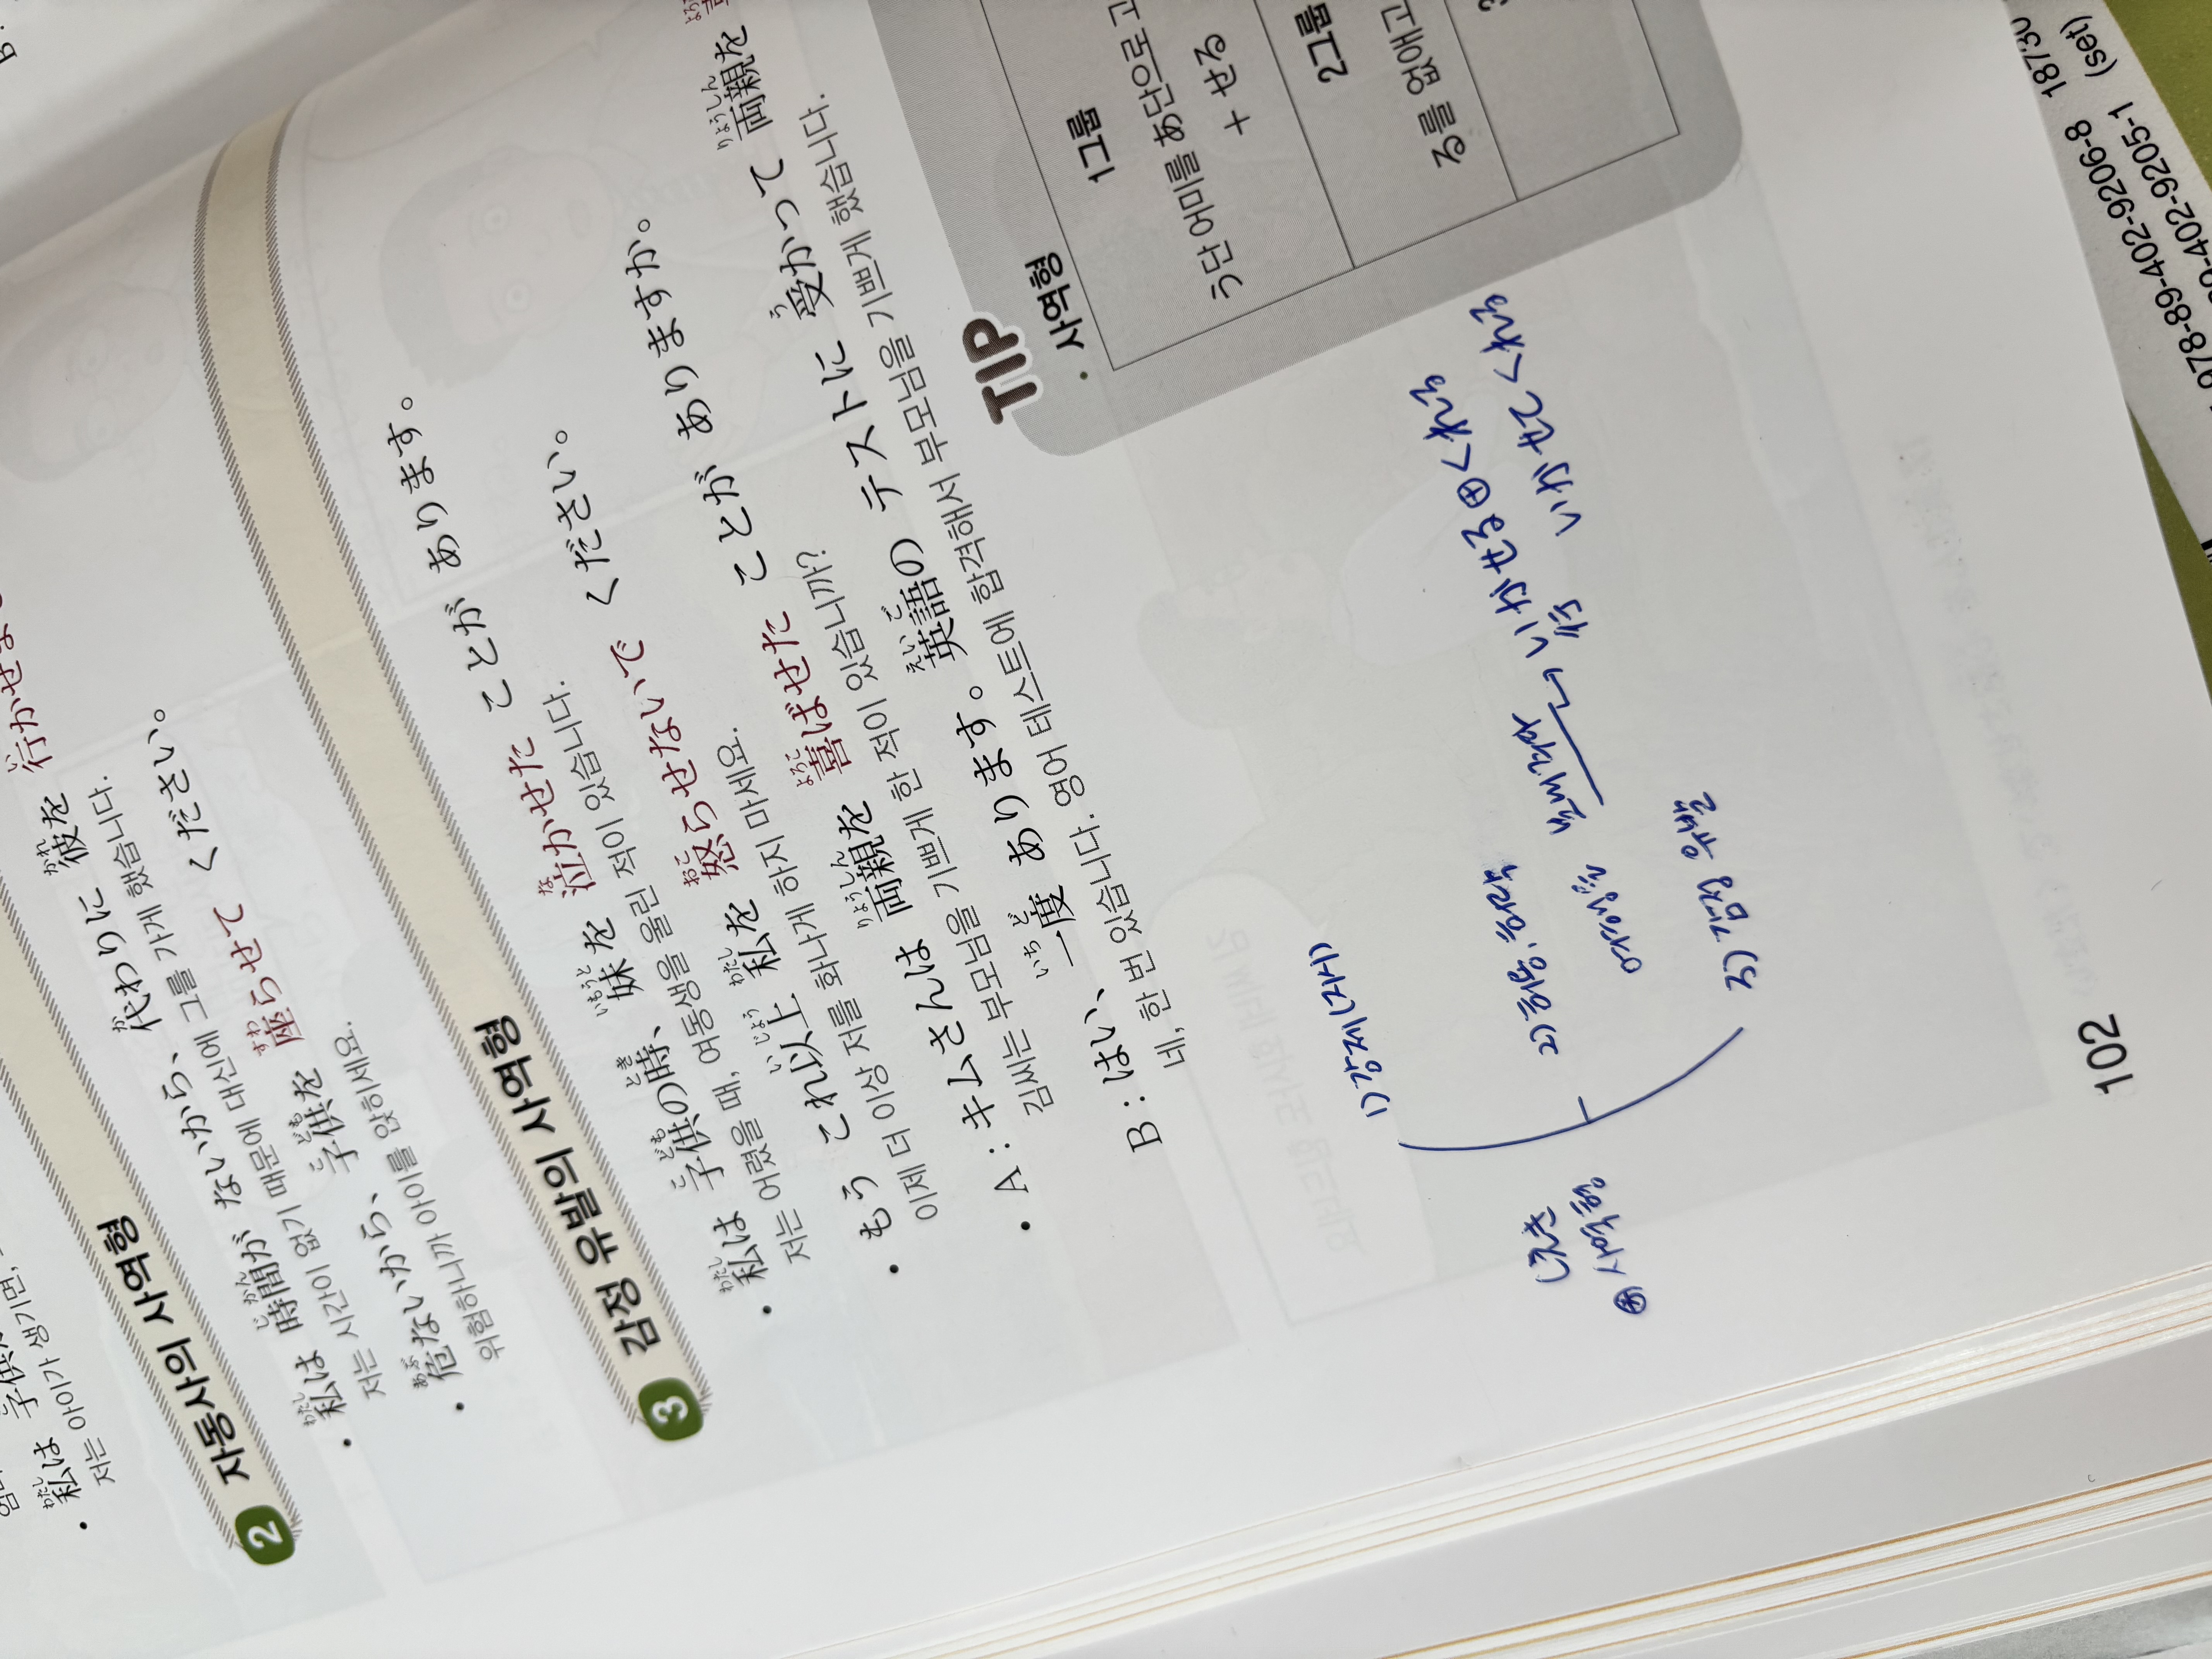 行かせま
私は 子供
저는 아이가 생기면,
2 자동사의 사역형
私は 時間が ないから、代わりに 彼を
저는 시간이 없기 때문에 대신에 그를 가게 했습니다.
危ないから、子供を 座らせて ください。
위험하니까 아이를 앉히세요.
3 감정 유발의 사역형
私は 子供の時、妹を 泣かせた ことが あります。
저는 어렸을 때, 여동생을 울린 적이 있습니다.
もう これ以上 私を 怒らせないで ください。
이제 더 이상 저를 화나게 하지 마세요.
A : キムさんは 両親を 喜ばせた ことが ありますか。
김씨는 부모님을 기쁘게 한 적이 있습니까?
B : はい、一度 あります。英語の テストに 受かって 両親を
네, 한 번 있습니다. 영어 테스트에 합격해서 부모님을 기쁘게 했습니다.
TIP
사역형
1그룹
う단 어미를 あ단으로 고
+ せる
2그룹
る를 없애고
しえき
사역형
1) 강제(지시)
2) 허용, 허락
불쾌각
いかせる+くれる
行 いかせてくれる
3) 감정 유발
102
978-89-402-9206-8 1873
89-402-9205-1 (set)